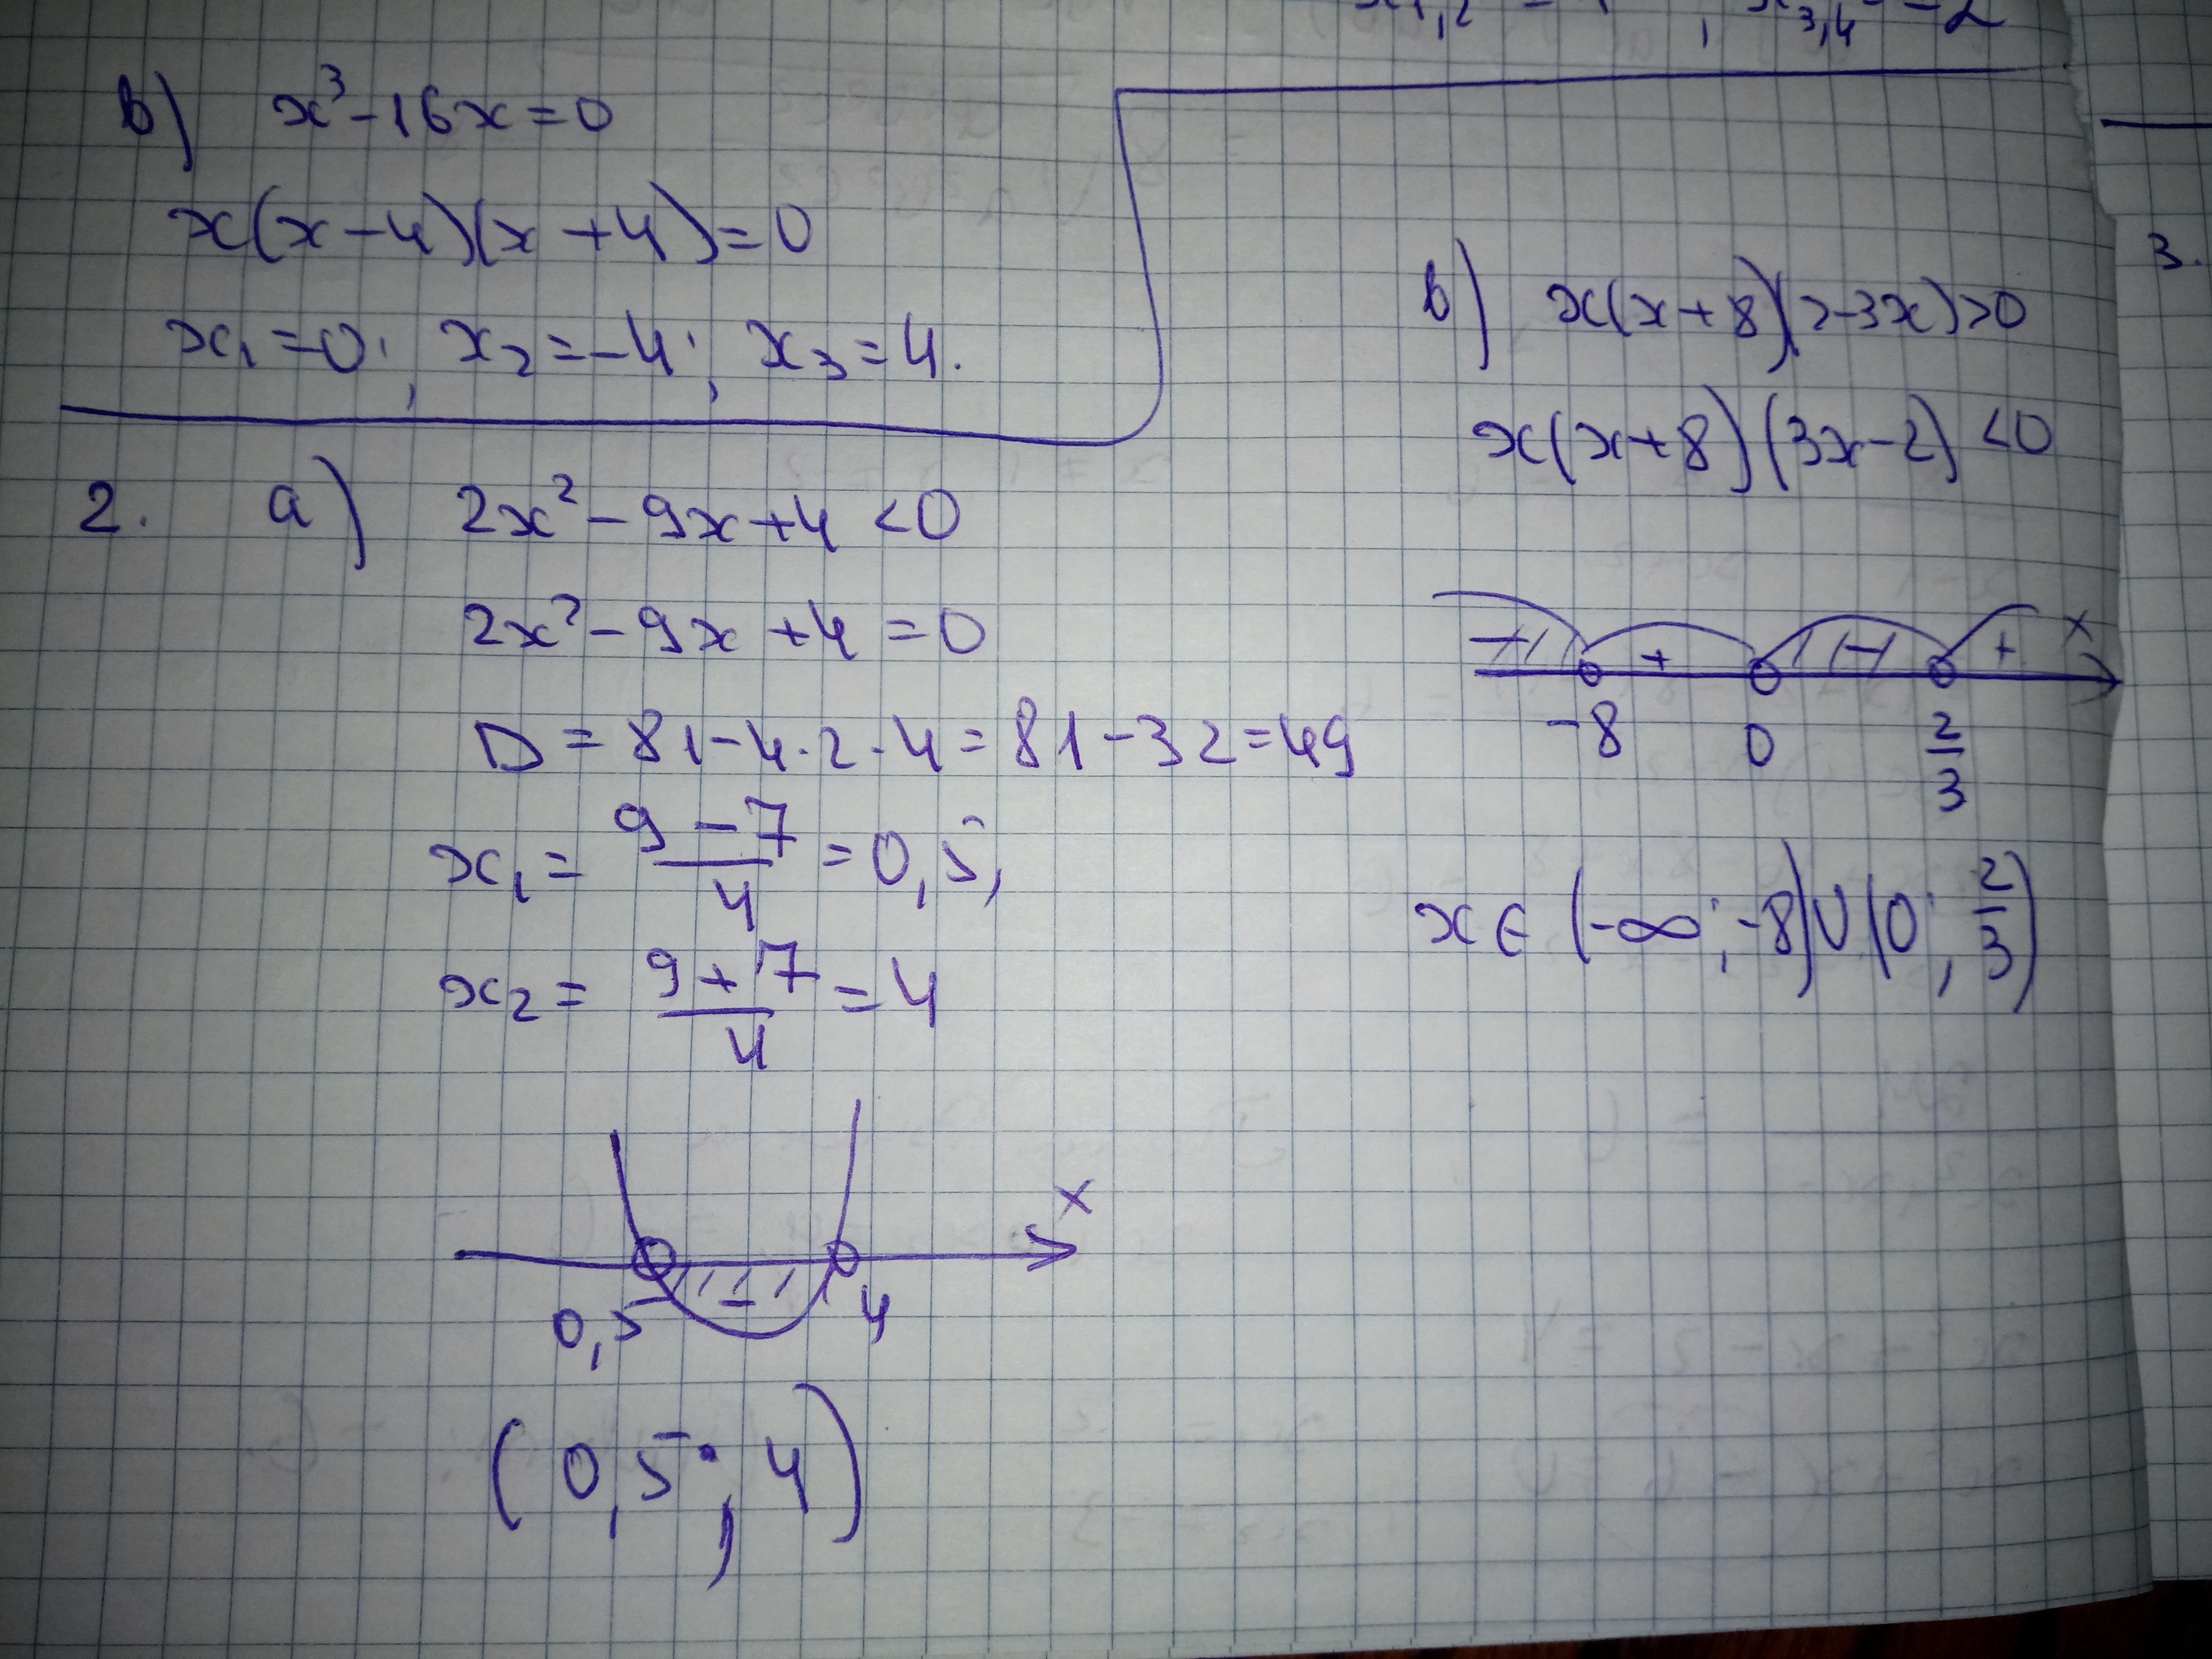 в) x³-16x=0
x(x-4)(x+4)=0
x₁=0; x₂=-4; x₃=4.
2. a) 2x²-9x+4<0
2x²-9x+4=0
D=81-4·2·4=81-32=49
x₁=(9-7)/4=0,5;
x₂=(9+7)/4=4
x
0,5 - 4
(0,5; 4)
в) x(x+8)(2-3x)>0
x(x+8)(3x-2)<0
- + - + x
-8 0 2/3
x∈(-∞;-8)∪(0; 2/3)
3.